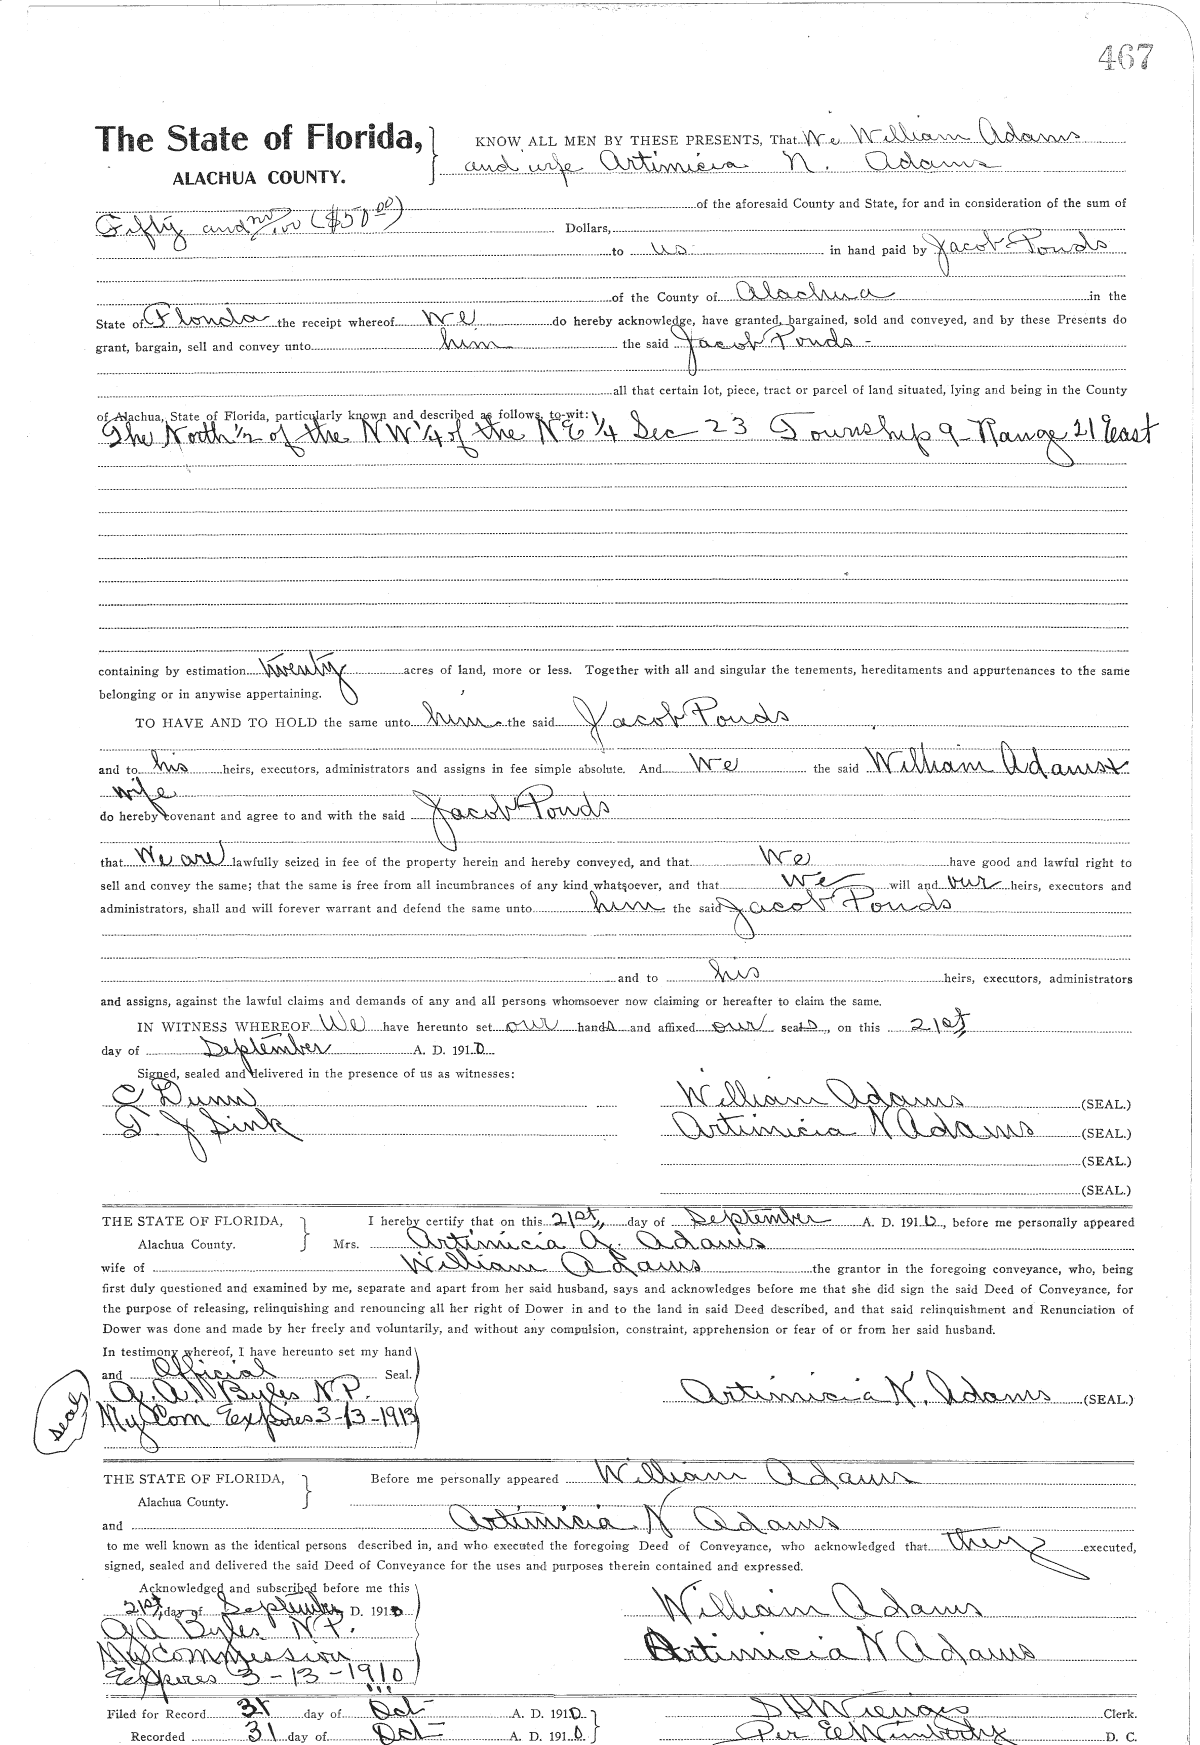 467
The State of Florida, KNOW ALL MEN BY THESE PRESENTS, That We William Adams
ALACHUA COUNTY. and wife Artimicia N. Adams
of the aforesaid County and State, for and in consideration of the sum of
Fifty and no/100 ($50.00) Dollars,
to us in hand paid by Jacob Ponds
of the County of Alachua in the
State of Florida the receipt whereof We do hereby acknowledge, have granted, bargained, sold and conveyed, and by these Presents do
grant, bargain, sell and convey unto him the said Jacob Ponds -
all that certain lot, piece, tract or parcel of land situated, lying and being in the County
of Alachua, State of Florida, particularly known and described as follows, to-wit:
The North 1/2 of the NW 1/4 of the NE 1/4 Sec 23 Township 9 - Range 21 East
containing by estimation twenty acres of land, more or less. Together with all and singular the tenements, hereditaments and appurtenances to the same
belonging or in anywise appertaining.
TO HAVE AND TO HOLD the same unto him the said Jacob Ponds
and to his heirs, executors, administrators and assigns in fee simple absolute. And We the said William Adams &
wife
do hereby covenant and agree to and with the said Jacob Ponds
that We are lawfully seized in fee of the property herein and hereby conveyed, and that We have good and lawful right to
sell and convey the same; that the same is free from all incumbrances of any kind whatsoever, and that We will and our heirs, executors and
administrators, shall and will forever warrant and defend the same unto him the said Jacob Ponds
and to his heirs, executors, administrators
and assigns, against the lawful claims and demands of any and all persons whomsoever now claiming or hereafter to claim the same.
IN WITNESS WHEREOF We have hereunto set our hands and affixed our seals, on this 21st
day of September A. D. 1910
Signed, sealed and delivered in the presence of us as witnesses:
C Dunn William Adams (SEAL.)
T. J Sink Artimicia N Adams (SEAL.)
(SEAL.)
(SEAL.)
THE STATE OF FLORIDA, I hereby certify that on this 21st, day of September A. D. 1910, before me personally appeared
Alachua County. Mrs. Artimicia A. Adams
wife of William Adams the grantor in the foregoing conveyance, who, being
first duly questioned and examined by me, separate and apart from her said husband, says and acknowledges before me that she did sign the said Deed of Conveyance, for
the purpose of releasing, relinquishing and renouncing all her right of Dower in and to the land in said Deed described, and that said relinquishment and Renunciation of
Dower was done and made by her freely and voluntarily, and without any compulsion, constraint, apprehension or fear of or from her said husband.
In testimony whereof, I have hereunto set my hand
and Official Seal.
Seal Byles N.P. Artimicia N. Adams (SEAL.)
My Com Expires 3-13-1913
THE STATE OF FLORIDA, Before me personally appeared William Adams
Alachua County.
and Artimicia N Adams
to me well known as the identical persons described in, and who executed the foregoing Deed of Conveyance, who acknowledged that they executed,
signed, sealed and delivered the said Deed of Conveyance for the uses and purposes therein contained and expressed.
Acknowledged and subscribed before me this
21st, day of September D. 1910 William Adams
Byles N.P.
My Commission Artimicia N Adams
Expires 3-13-1910
Filed for Record 31 day of Oct A. D. 1910 Clerk.
Recorded 31 day of Oct A. D. 1910 Per D. C.